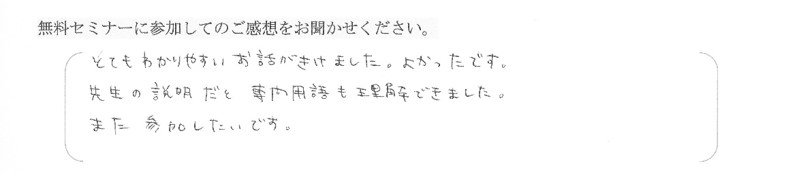 無料セミナーに参加してのご感想をお聞かせください。
とてもわかりやすいお話がきけました。よかったです。
先生の説明だと専門用語も理解できました。
また参加したいです。